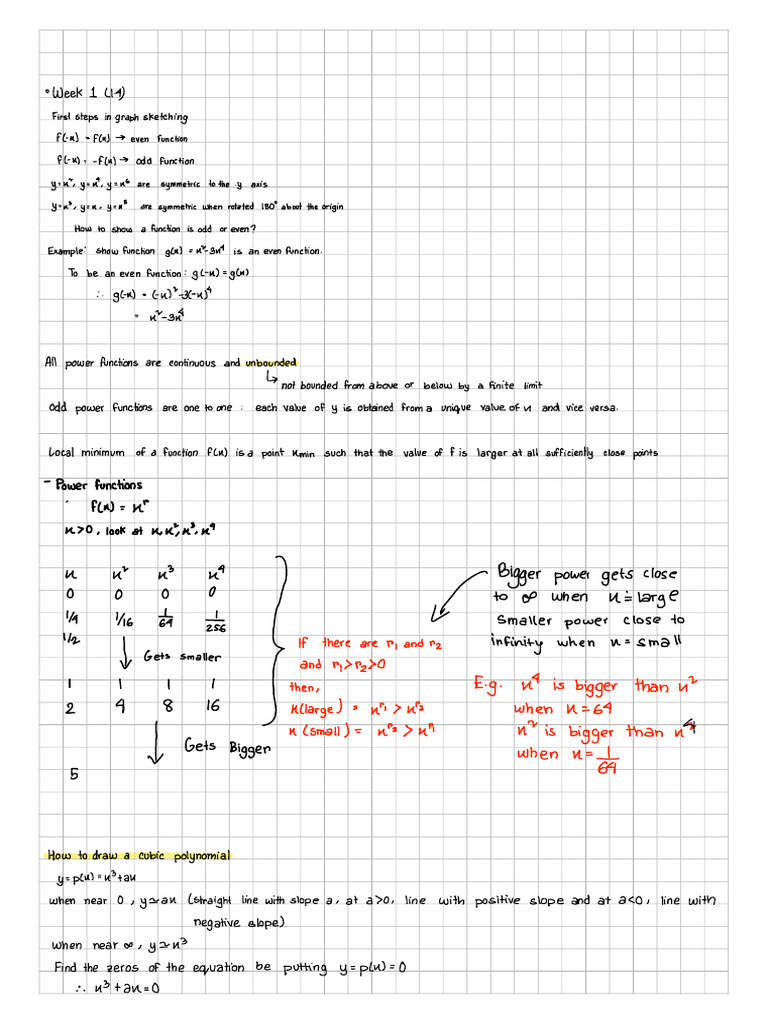 • Week 1 (1.4)
First steps in graph sketching
f(-x) = f(x) → even function
f(-x) = -f(x) → odd function
y=x², y=x⁴, y=x⁶ are symmetric to the y axis
y=x³, y=x, y=x⁵ are symmetric when rotated 180° about the origin
How to show a function is odd or even?
Example: show function g(x) = x²-3x⁴ is an even function.
To be an even function: g(-x) = g(x)
∴ g(-x) = (-x)²-3(-x)⁴
= x²-3x⁴
All power functions are continuous and unbounded
↳ not bounded from above or below by a finite limit
Odd power functions are one to one : each value of y is obtained from a unique value of x and vice versa.
Local minimum of a function f(x) is a point xmin such that the value of f is larger at all sufficiently close points
- Power functions
f(x) = xⁿ
x>0, look at x, x², x³, x⁴
x x² x³ x⁴
0 0 0 0
1/4 1/16 1/64 1/256
1/2
↓ Gets smaller
1 1 1 1
2 4 8 16
↓ Gets Bigger
5
If there are r₁ and r₂
and r₁>r₂>0
then,
x(large) = xʳ¹ > xʳ²
x (small) = xʳ² > xʳ¹
Bigger power gets close
to ∞ when x = large
Smaller power close to
infinity when x = small
E.g. x⁴ is bigger than x²
when x = 64
x² is bigger than x⁴
when x = 1/64
How to draw a cubic polynomial
y=p(x)=x³+ax
when near 0, y≃ax (straight line with slope a, at a>0, line with positive slope and at a<0, line with
negative slope)
when near ∞, y≃x³
Find the zeros of the equation be putting y=p(x)=0
∴ x³+ax=0